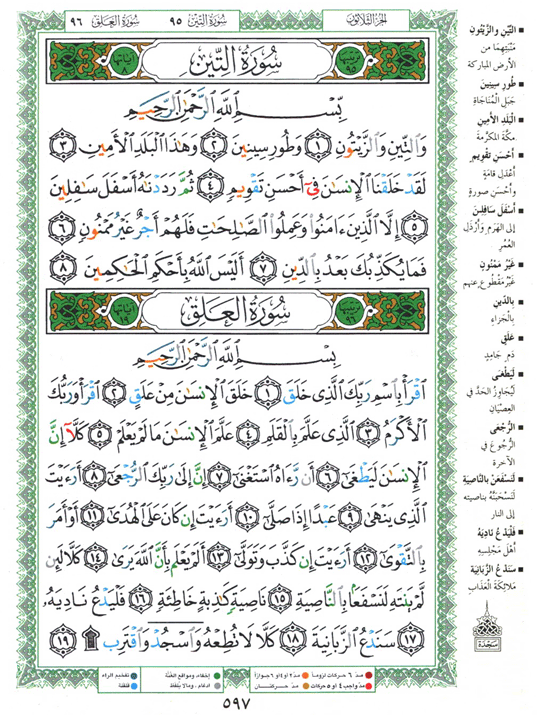 سُورَةُ العَلَق ٩٦
سُورَةُ التِّين ٩٥
الجُزءُ الثَّلَاثُونَ
سُورَةُ التِّينِ
ترتيبها ٩٥
آياتها ٨
بِسْمِ اللَّهِ الرَّحْمَٰنِ الرَّحِيمِ
وَالتِّينِ وَالزَّيْتُونِ ١ وَطُورِ سِينِينَ ٢ وَهَٰذَا الْبَلَدِ الْأَمِينِ ٣
لَقَدْ خَلَقْنَا الْإِنسَٰنَ فِىٓ أَحْسَنِ تَقْوِيمٍ ٤ ثُمَّ رَدَدْنَٰهُ أَسْفَلَ سَٰفِلِينَ
٥ إِلَّا الَّذِينَ ءَامَنُوا۟ وَعَمِلُوا۟ الصَّٰلِحَٰتِ فَلَهُمْ أَجْرٌ غَيْرُ مَمْنُونٍ ٦
فَمَا يُكَذِّبُكَ بَعْدُ بِالدِّينِ ٧ أَلَيْسَ اللَّهُ بِأَحْكَمِ الْحَٰكِمِينَ ٨
سُورَةُ العَلَقِ
بِسْمِ اللَّهِ الرَّحْمَٰنِ الرَّحِيمِ
اقْرَأْ بِاسْمِ رَبِّكَ الَّذِى خَلَقَ ١ خَلَقَ الْإِنسَٰنَ مِنْ عَلَقٍ ٢ اقْرَأْ وَرَبُّكَ
الْأَكْرَمُ ٣ الَّذِى عَلَّمَ بِالْقَلَمِ ٤ عَلَّمَ الْإِنسَٰنَ مَا لَمْ يَعْلَمْ ٥ كَلَّآ إِنَّ
الْإِنسَٰنَ لَيَطْغَىٰٓ ٦ أَن رَّءَاهُ اسْتَغْنَىٰٓ ٧ إِنَّ إِلَىٰ رَبِّكَ الرُّجْعَىٰٓ ٨ أَرَءَيْتَ
الَّذِى يَنْهَىٰ ٩ عَبْدًا إِذَا صَلَّىٰٓ ١٠ أَرَءَيْتَ إِن كَانَ عَلَى الْهُدَىٰٓ ١١ أَوْ أَمَرَ
بِالتَّقْوَىٰٓ ١٢ أَرَءَيْتَ إِن كَذَّبَ وَتَوَلَّىٰٓ ١٣ أَلَمْ يَعْلَم بِأَنَّ اللَّهَ يَرَىٰ ١٤ كَلَّا لَئِن
لَّمْ يَنتَهِ لَنَسْفَعًۢا بِالنَّاصِيَةِ ١٥ نَاصِيَةٍ كَٰذِبَةٍ خَاطِئَةٍ ١٦ فَلْيَدْعُ نَادِيَهُۥ
١٧ سَنَدْعُ الزَّبَانِيَةَ ١٨ كَلَّا لَا تُطِعْهُ وَاسْجُدْ وَاقْتَرِب ۩ ١٩
التِّينِ وَالزَّيْتُونِ
مَنْبَتِهِمَا مِن
الأَرْضِ المُبَارَكَة
طُورِ سِينِينَ
جَبَلِ الْمُنَاجَاةِ
الْبَلَدِ الأَمِينِ
مَكَّةَ المُكَرَّمَة
أَحْسَنِ تَقْوِيم
أَعْدَلِ قَامَةٍ
وَأَحْسَنِ صورةٍ
أَسْفَلَ سَافِلِينَ
إلى الهَرَمِ وَأَرْذَلِ
العُمُر
غَيْرُ مَمْنُونٍ
غَيْرُ مَقْطُوعٍ عنهم
بِالدِّينِ
بِالْجَزَاءِ
عَلَقٍ
دَمٍ جَامِدٍ
لَيَطْغَى
لَيُجَاوِزُ الحَدَّ في
العِصْيَانِ
الرُّجْعَى
الرُّجُوعَ في
الآخرة
لَنَسْفَعَنْ بِالنَّاصِيَةِ
لَنَسْحَبَنَّهُ بِنَاصِيتِه
إلى النار
فَلْيَدْعُ نَادِيَهُ
أَهْلَ مَجْلِسِهِ
سَنَدْعُ الزَّبَانِيَة
مَلَائِكَةَ العَذَابِ
سَجْدَة
مدّ ٦ حركات لزوماً
مدّ ٢ أو ٤ أو ٦ جوازاً
إخفاء، ومواقع الغُنَّة
تفخيم الراء
مدّ واجب ٤ أو ٥ حركات
مدّ حركتان
ادغام، ومالا يُلفَظ
قلقلة
٥٩٧